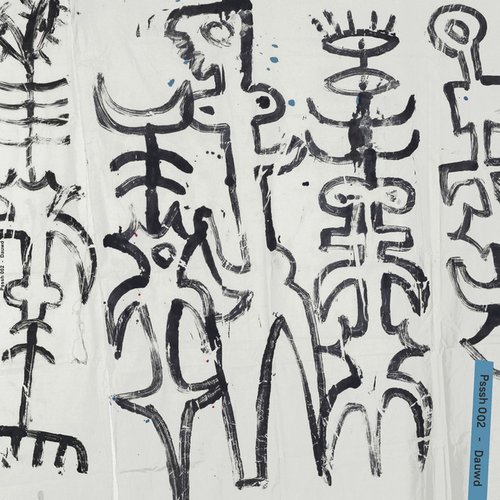 Psssh 002 - Dauwd
Psssh 002 - Dauwd